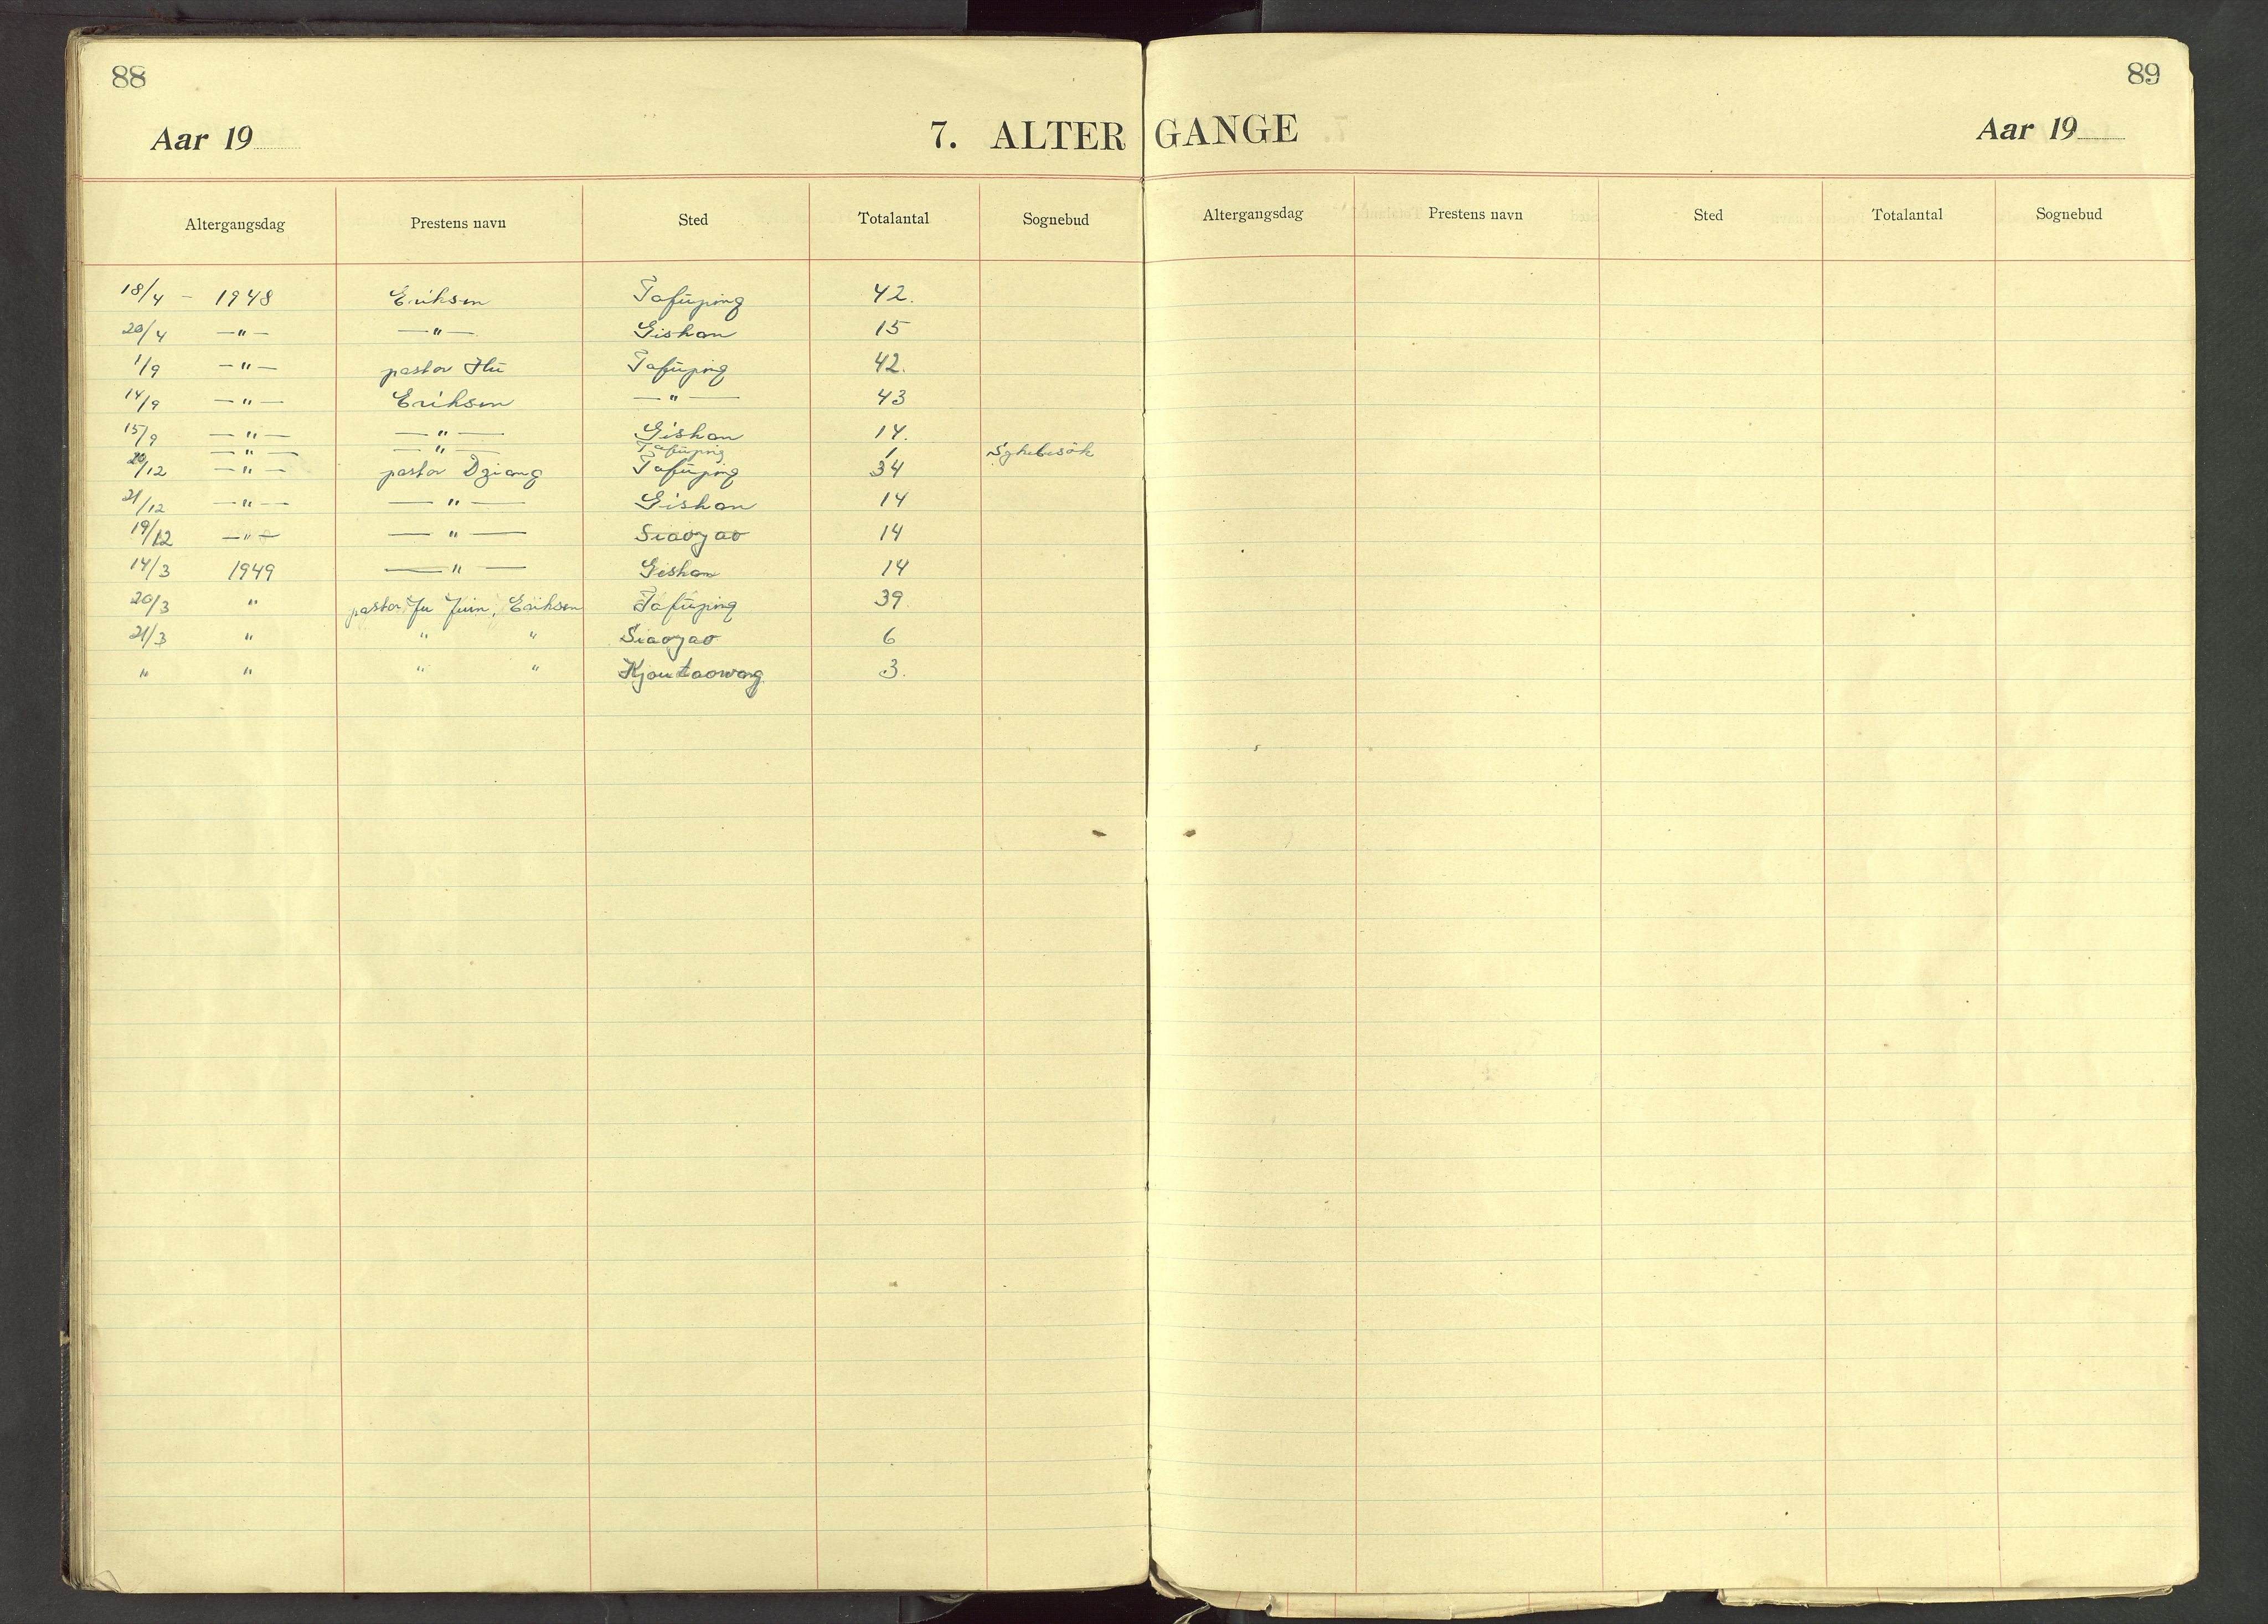 88
89
Aar 19
7. ALTERGANGE
Aar 19
Altergangsdag Prestens navn Sted Totalantal Sognebud
Altergangsdag Prestens navn Sted Totalantal Sognebud
18/4 - 1948 Eriksen Tafüping 42.
20/4 —"— —"— Gishan 15
1/9 —"— pastor Hü Tafüping 42.
14/9 —"— Eriksen —"— 43
15/9 —"— —"— Gishan 14.
—"— —"— Tafüping 1 Sykebesök
20/12 —"— pastor Dziang Tafüping 34
21/12 —"— —"— Gishan 14
19/12 —"— —"— Siaoyao 14
14/3 1949 —"— Gishan 14
20/3 " pastor Eriksen Tafüping 39.
21/3 " " " Siaoyao 6
" " " " Kjoutaowang 3.